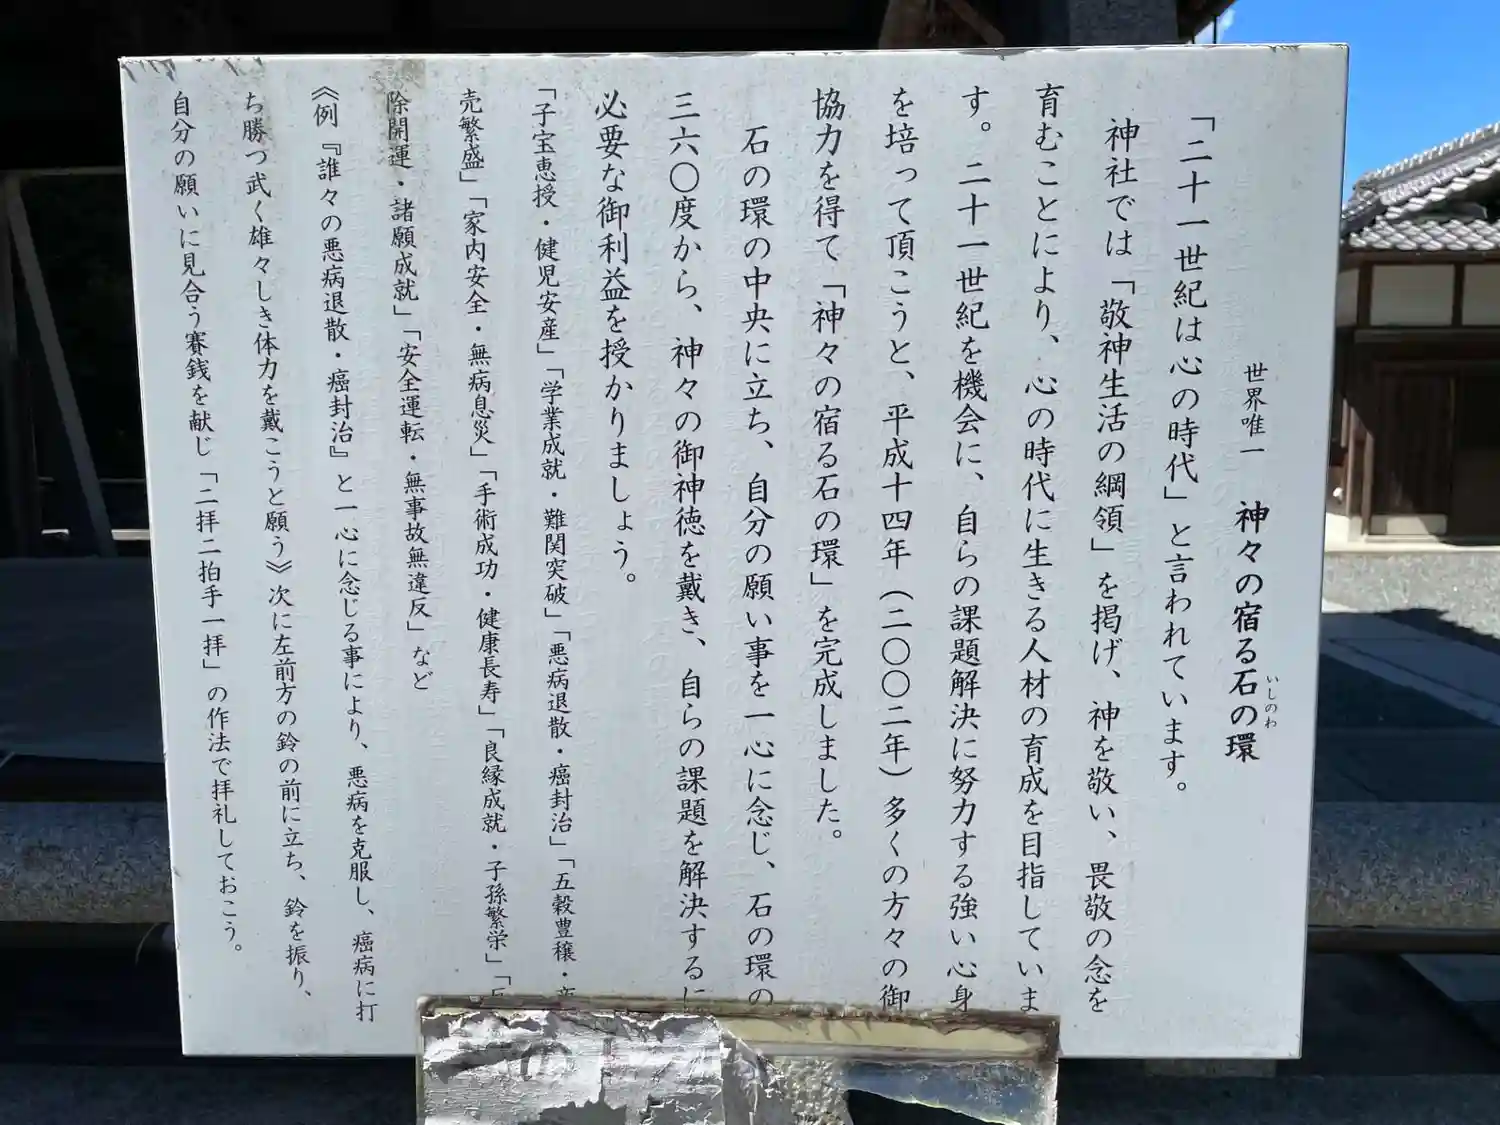 世界唯一 神々の宿る石の環
いしのわ
「二十一世紀は心の時代」と言われています。
神社では「敬神生活の綱領」を掲げ、神を敬い、畏敬の念を
育むことにより、心の時代に生きる人材の育成を目指していま
す。二十一世紀を機会に、自らの課題解決に努力する強い心身
を培って頂こうと、平成十四年(二〇〇二年)多くの方々の御
協力を得て「神々の宿る石の環」を完成しました。
石の環の中央に立ち、自分の願い事を一心に念じ、石の環の
三六〇度から、神々の御神徳を戴き、自らの課題を解決するに
必要な御利益を授かりましょう。
「子宝恵授・健児安産」「学業成就・難関突破」「悪病退散・癌封治」「五穀豊穣・
売繁盛」「家内安全・無病息災」「手術成功・健康長寿」「良縁成就・子孫繁栄」「
除開運・諸願成就」「安全運転・無事故無違反」など
《例『誰々の悪病退散・癌封治』と一心に念じる事により、悪病を克服し、癌病に打
ち勝つ武く雄々しき体力を戴こうと願う》次に左前方の鈴の前に立ち、鈴を振り、
自分の願いに見合う賽銭を献じ「二拝二拍手一拝」の作法で拝礼しておこう。